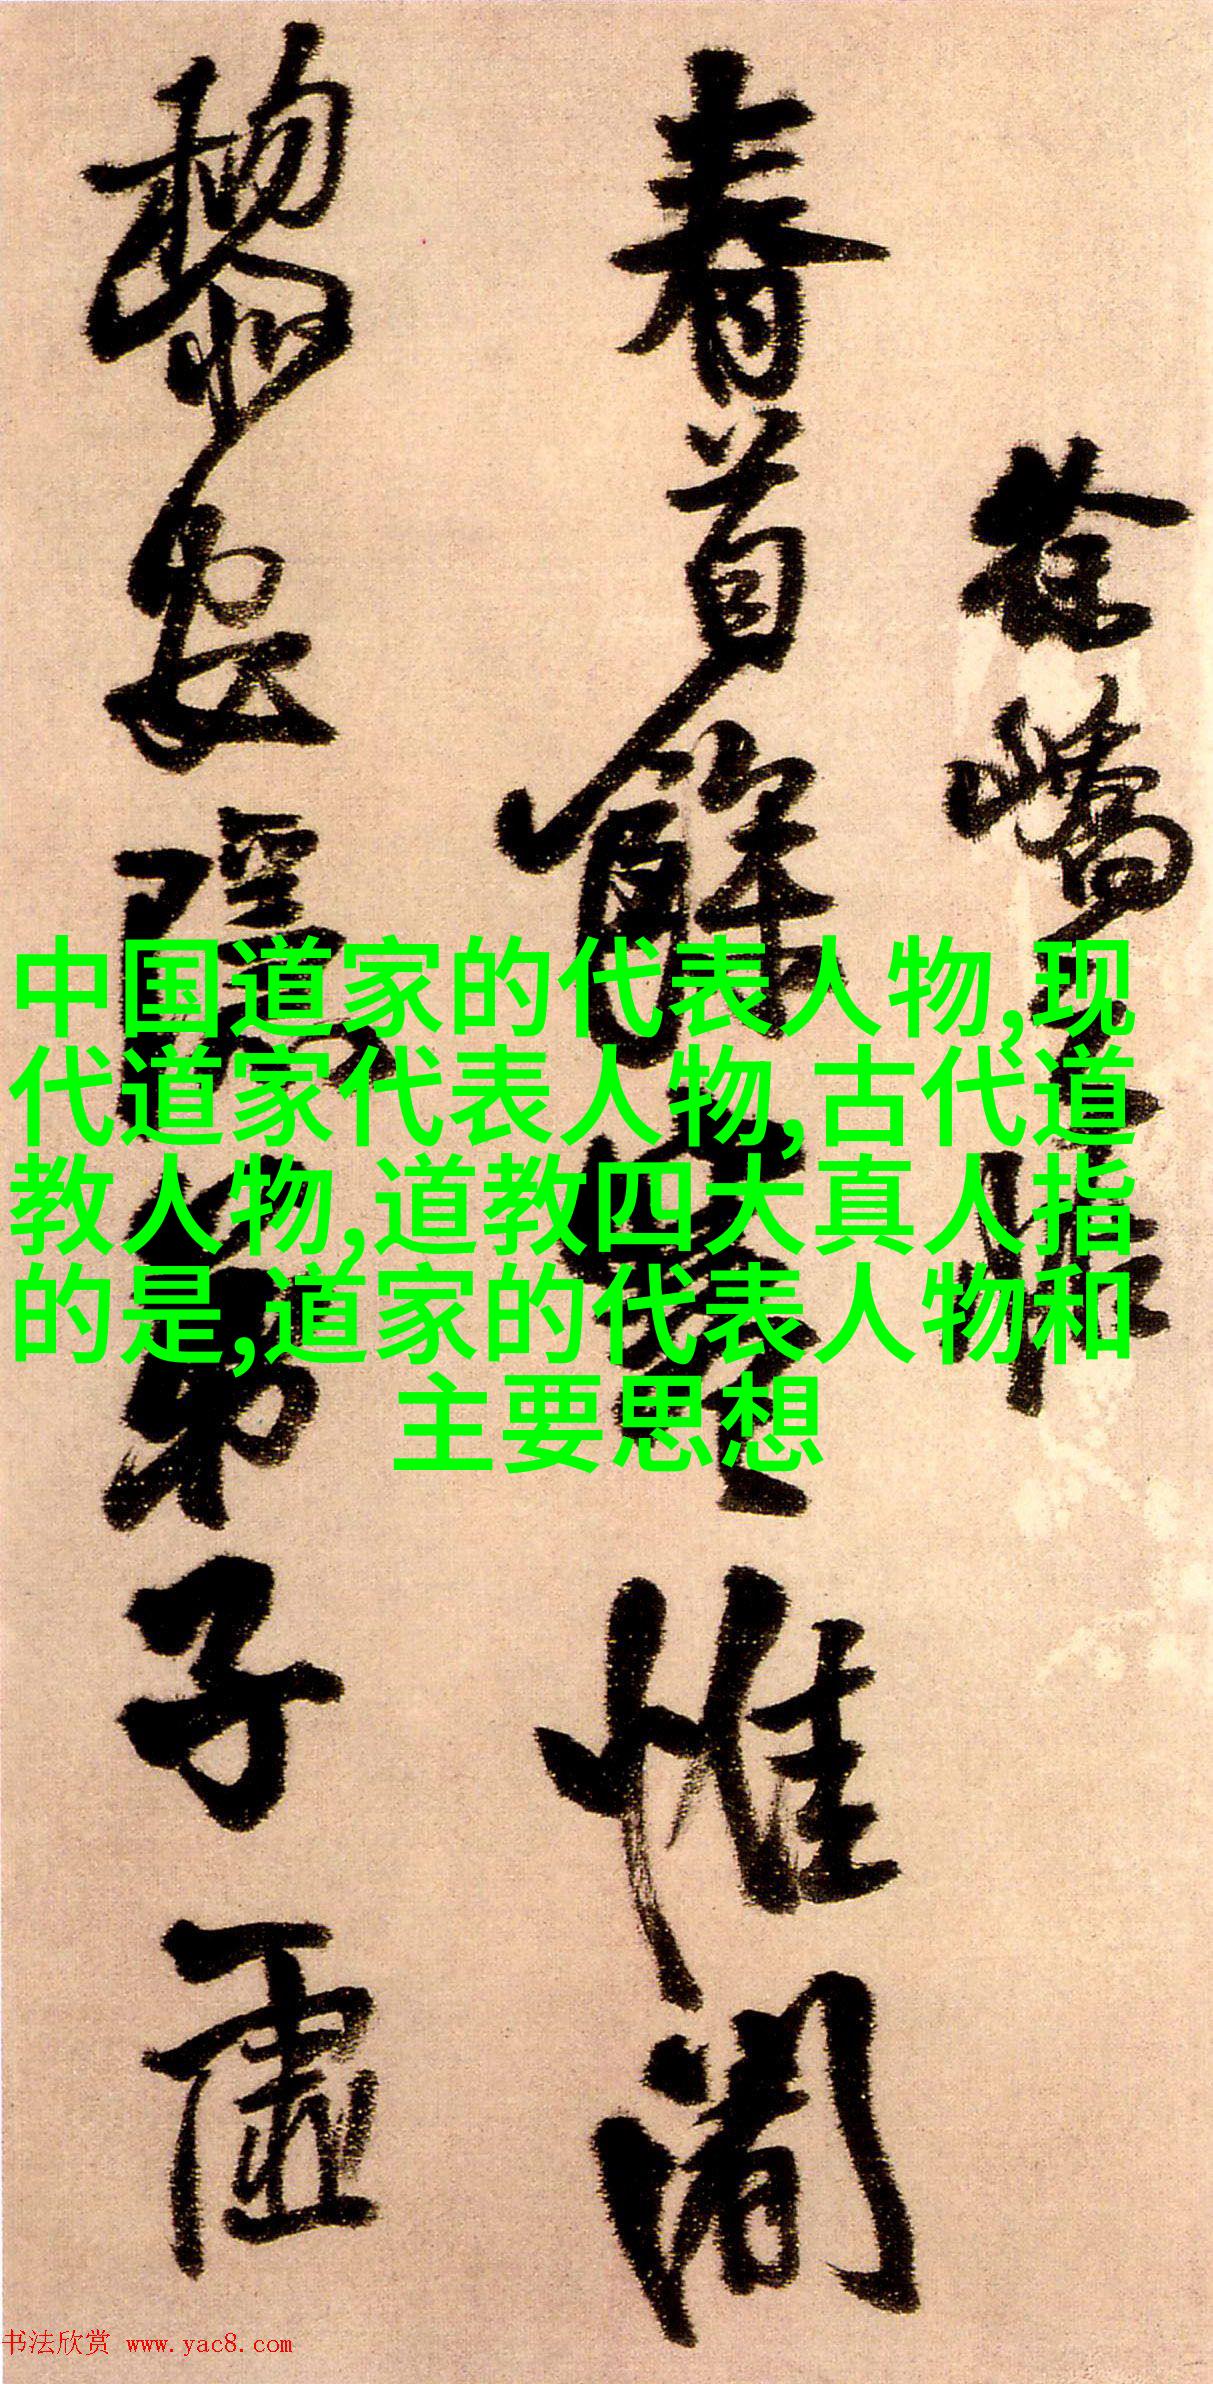 徐嶠之帖
春首餘寒惟闍
黎安隱弟子虛
中国道家的代表人物,现
代道家代表人物,古代道
教人物,道教四大真人指
的是,道家的代表人物和
主要思想
书法欣赏 www.yac8.com